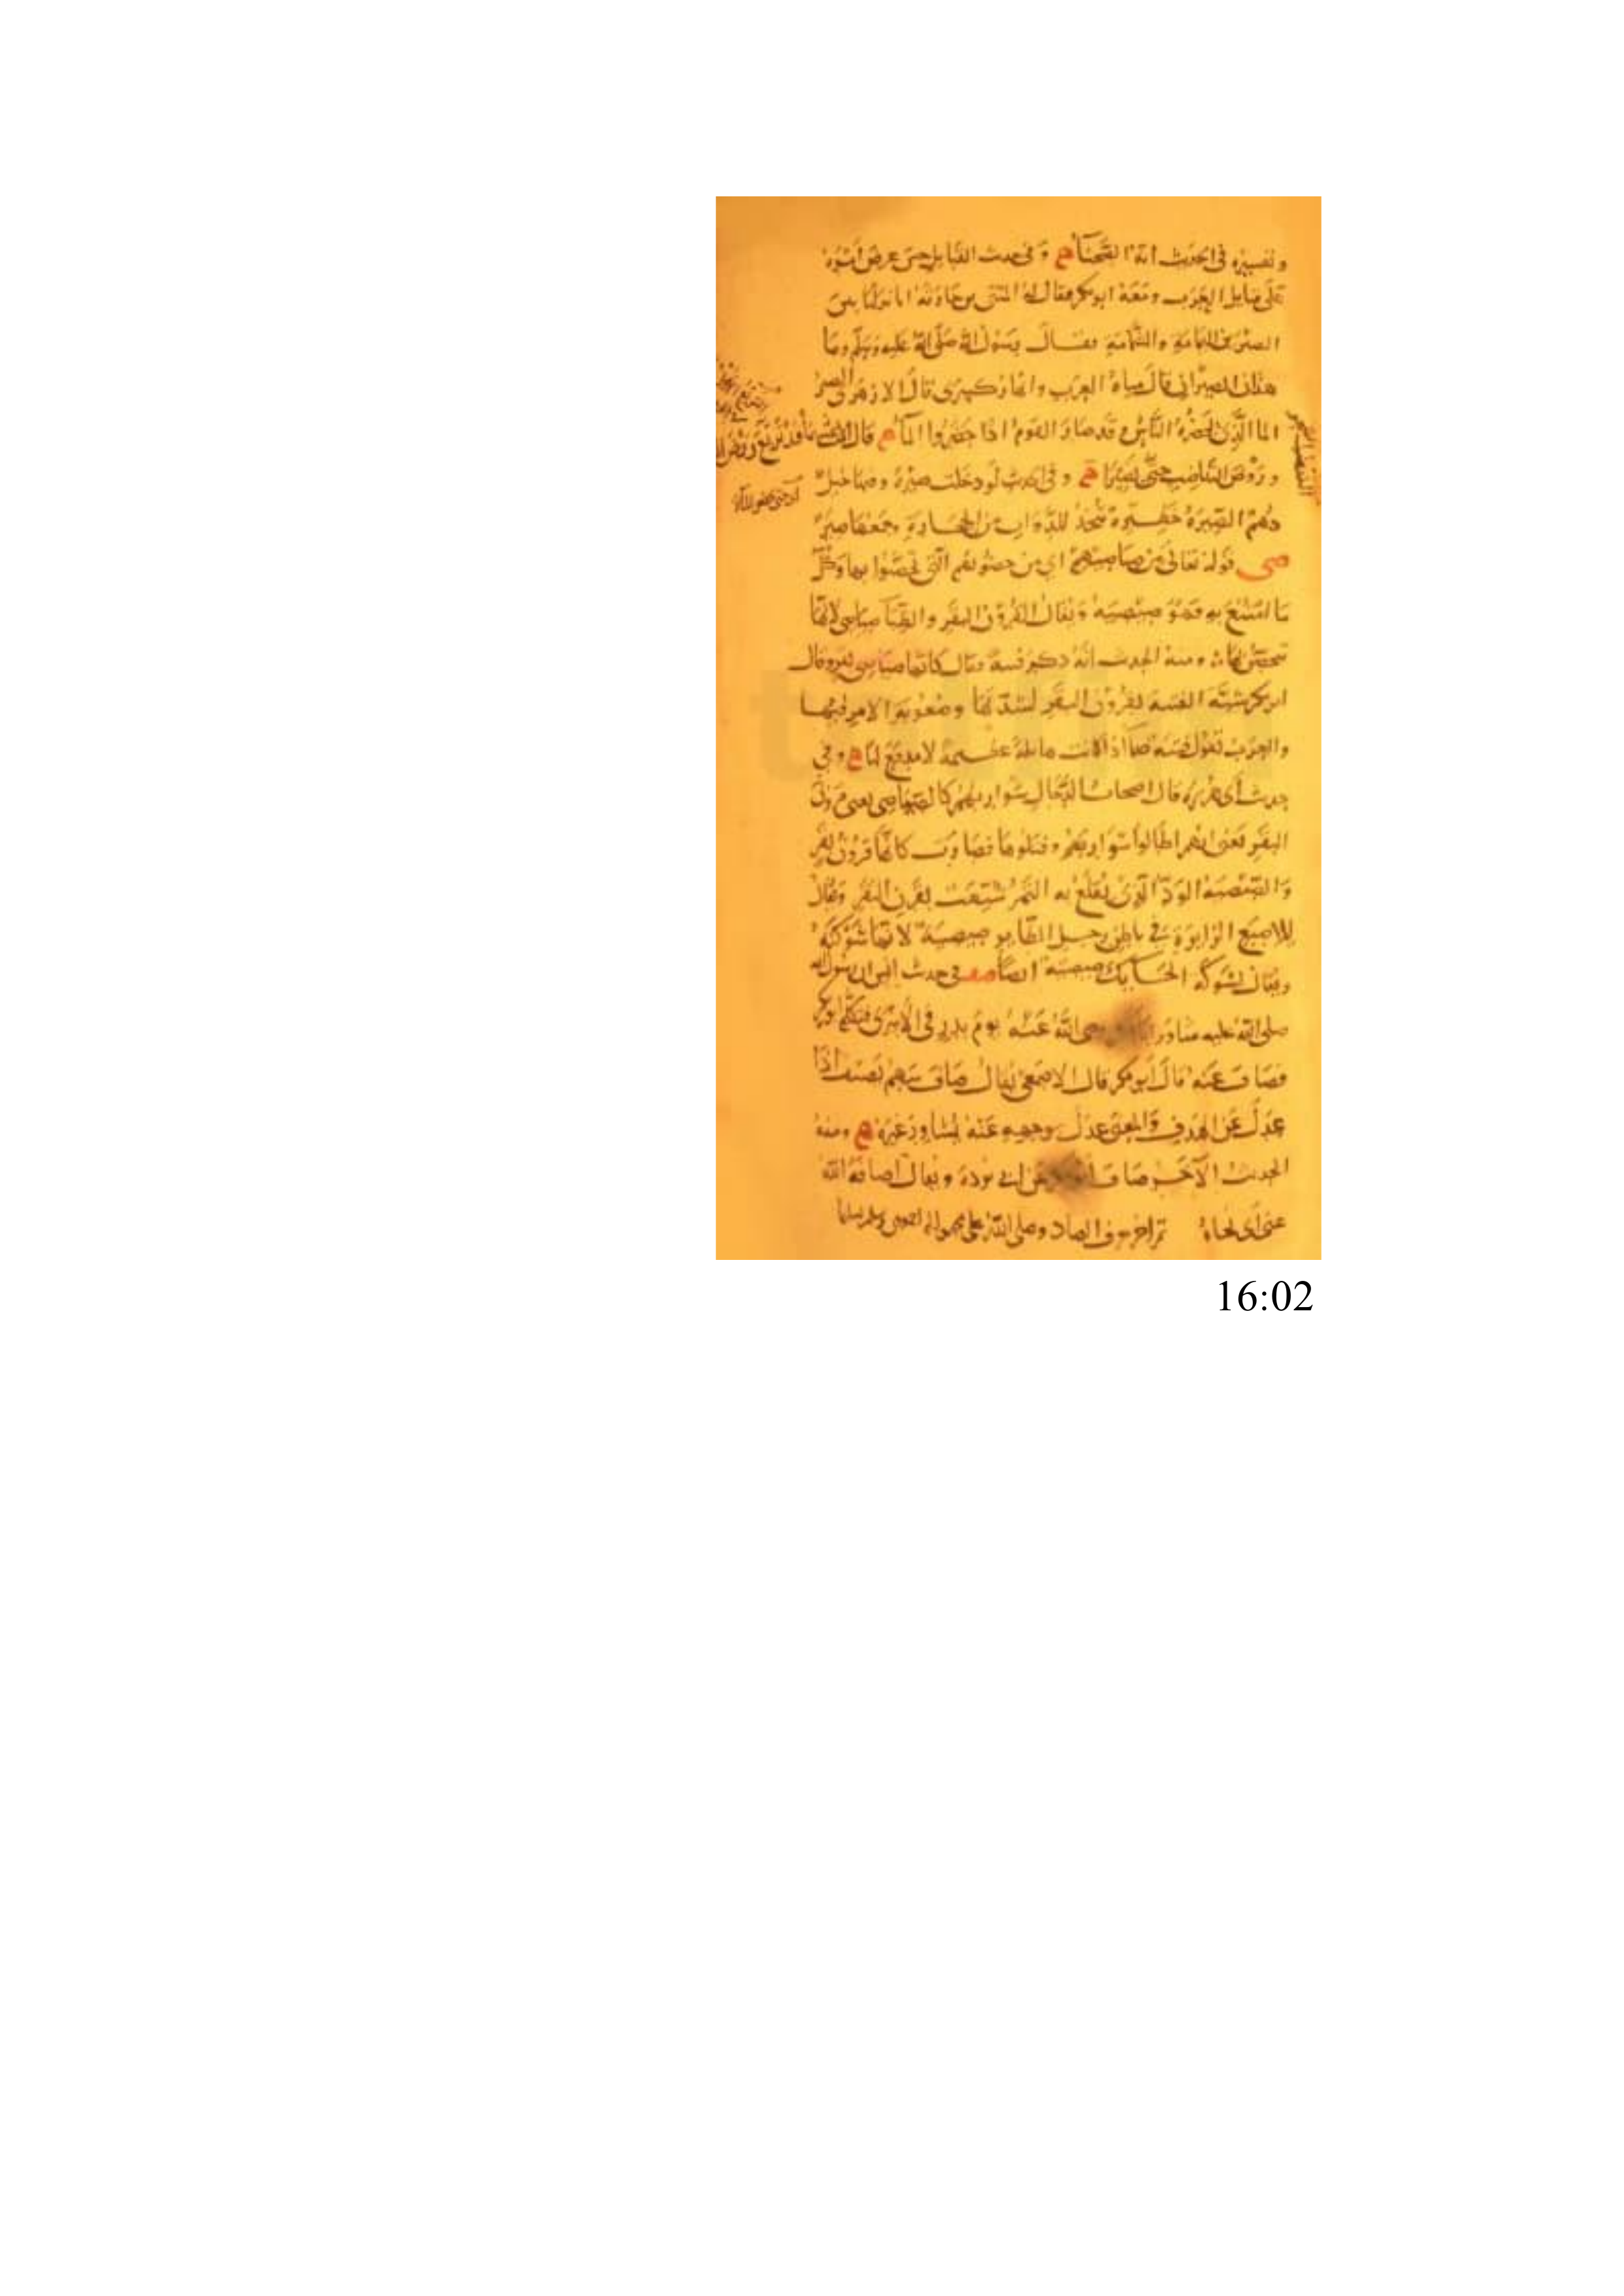 وتفسيره في الحديث انه الصحناة ه وفي حديث القبايل حين عرض امره
على قبايل العرب ومعه ابو بكر فقال له المثنى بن حارثة انا نزلنا بين
الصيرين اليمامة والشمامة فقال رسول الله صلى الله عليه وسلم وما
هذان الصيران قال مياه العرب وانهار كسرى قال الازهري الصير
الما الذي يحضره الناس وقد صار القوم اذا حضروا الماء ه قال
وروض التناضب حتى تصيرا ه وفي الحديث لو دخلت صيرة وفيها خيل
دهم الصيرة حظيرة تتخذ للدواب من الحجارة وجمعها صير
صى قوله تعالى من صياصيهم اي من حصونهم التي تحصنوا بها وكل
ما امتنع به فهو صيصية ويقال لقرون البقر والظبا صياصي لانها
تتحصن بها ومنه الحديث انه ذكر فتنة فقال كانها صياصي بقر وقال
ابو بكر شبه الفتنة بقرون البقر لشدتها وصعوبة الامر فيها
والعرب تقول فتنة صما اذا كانت هايلة عظيمة لا مدفع لها ه وفي
حديث أبي هريرة قال اصحاب الدجال شواربهم كالصياصي يعني قرون
البقر فعنى انهم اطالوا شواربهم وفتلوها فصارت كانها قرون بقر
والصيصية الود الذي يقلع به التمر شبهت بقرن البقر ويقال
للاصبع الزايدة في باطن رجل الطاير صيصية لانها شوكته
ويقال لشوكة الحايك صيصية ايضا صف في حديث انس ان رسول الله
صلى الله عليه شاور ابا بكر رضي الله عنه يوم بدر في الاسرى فتكلم ابو بكر
فصاف عنه قال أبو بكر قال الاصمعي يقال صاف سهم يصيف اذا
عدل عن الهدف والمعنى عدل بوجهه عنه ليشاور غيره ه ومنه
الحديث الآخر صاف عن ابي بردة ويقال اصافه الله
عني أي نحاه تم اخر حرف الصاد وصلى الله على محمد واله اجمعين وسلم تسليما
16:02